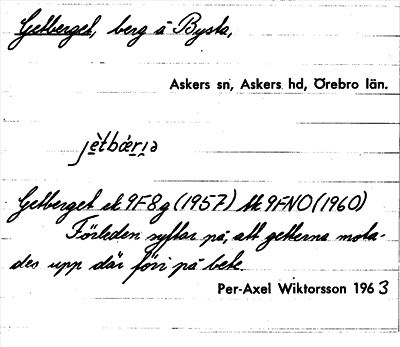 Getberget, berg å Bysta,
Askers sn, Askers hd, Örebro län.
Getberget ek 9F8g (1957) tk 9FNO (1960)
Förleden syftar på, att getterna mota-
des upp där förr på bete.
Per-Axel Wiktorsson 1963